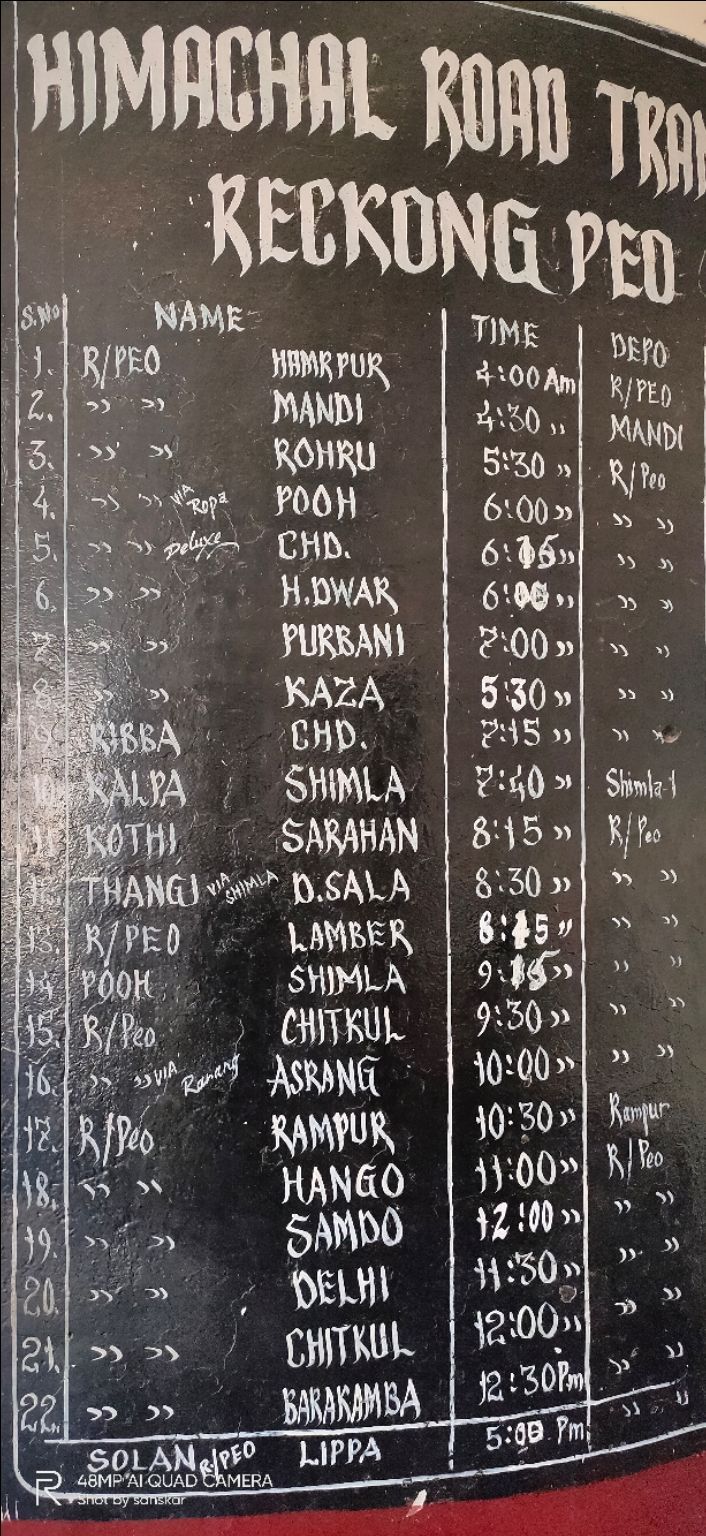 HIMACHAL ROAD TRAN
RECKONG PEO
S.No NAME TIME DEPO
1. R/PEO HAMRPUR 4:00 Am R/PEO
2. " " MANDI 4:30 " MANDI
3. " " ROHRU 5:30 " R/Peo
4. " " VIA Ropa POOH 6:00 " " "
5. " " Deluxe CHD. 6:15 " " "
6. " " H.DWAR 6:00 " " "
7. " " PURBANI 7:00 " " "
8. " " KAZA 5:30 " " "
9. RIBBA CHD. 7:15 " " "
10. KALPA SHIMLA 7:40 " Shimla-1
11. KOTHI SARAHAN 8:15 " R/Peo
12. THANGI VIA SHIMLA D.SALA 8:30 " " "
13. R/PEO LAMBER " " "
14 POOH SHIMLA 9:15 " " "
15. R/Peo CHITKUL 9:30 " " "
16. " " VIA Rarang ASRANG 10:00 " " "
17. R/Peo RAMPUR 10:30 " Rampur
18. " " HANGO 11:00 " R/Peo
19. " " SAMDO 12:00 " " "
20. " " DELHI 11:30 " " "
21. " " CHITKUL 12:00 " " "
22. " " BARAKAMBA 12:30 Pm " "
SOLAN R/PEO LIPPA 5:00 Pm " "
48MP AI QUAD CAMERA
Shot by sanskar